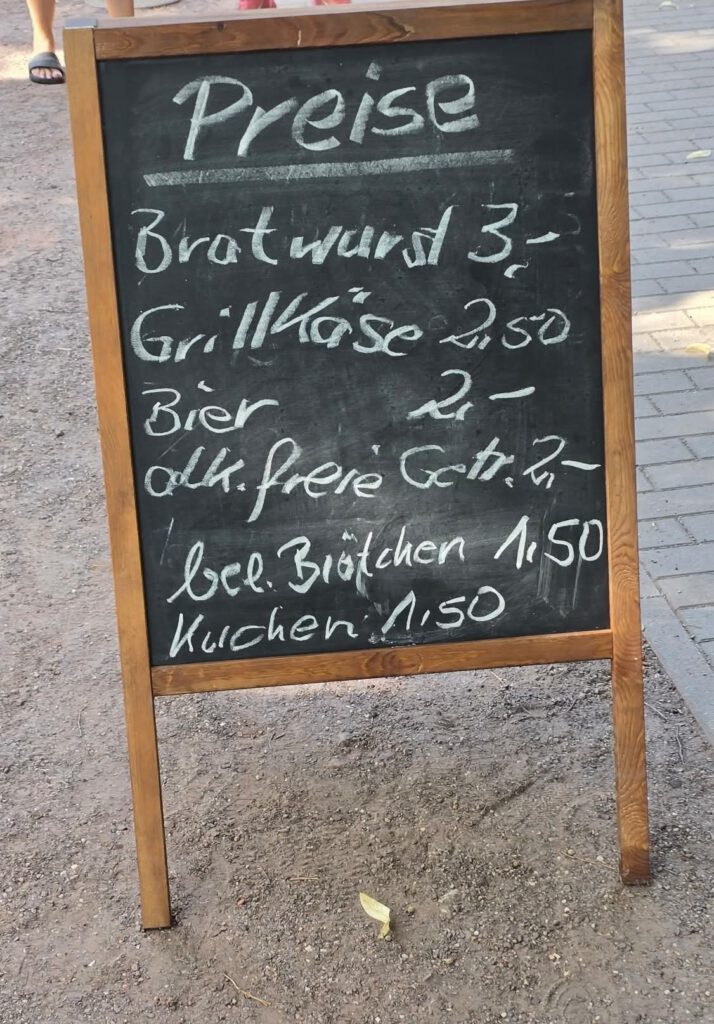 Preise
Bratwurst 3,-
Grillkäse 2,50
Bier 2,-
alk. freie Getr. 2,-
bel. Brötchen 1,50
Kuchen 1,50